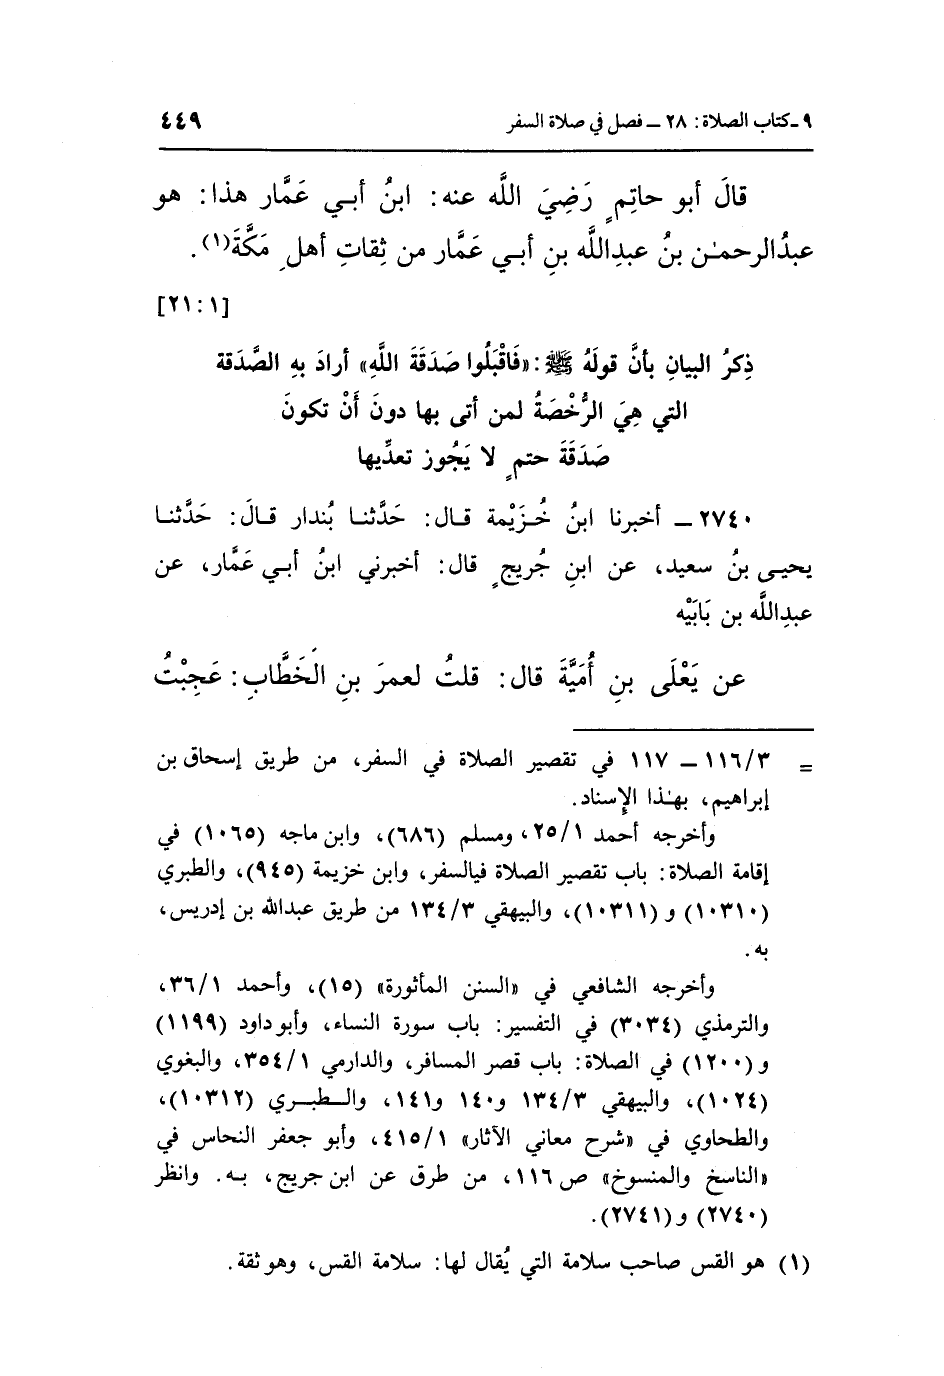 ٩ ـ كتاب الصلاة: ٢٨ ــ فصل في صلاة السفر ٤٤٩
قالَ أبو حاتِمٍ رَضِيَ اللَّه عنه: ابنُ أبي عَمَّار هذا: هو
عبدُالرحمـٰن بنُ عبدِاللَّه بنِ أبي عَمَّار من ثِقاتِ أهلِ مَكَّةَ(١).
[٢١:١]
ذِكرُ البيانِ بأنَّ قولَهُ ﷺ: «فَاقْبَلُوا صَدَقَةَ اللَّهِ» أرادَ بِهِ الصَّدَقة
التي هِيَ الرُّخْصَةُ لمن أتى بها دونَ أَنْ تكونَ
صَدَقَةَ حتمٍ لا يَجُوز تعدِّيها
٢٧٤٠ ــ أخبرنا ابنُ خُزَيْمة قال: حَدَّثنا بُندار قالَ: حَدَّثنا
يحيى بنُ سعيد، عن ابنِ جُريجٍ قال: أخبرني ابنُ أبي عَمَّار، عن
عبدِاللَّه بن بَابَيْه
عن يَعْلَى بنِ أُمَيَّةَ قال: قلتُ لعمرَ بنِ الخَطَّابِ: عَجِبْتُ
= ١١٦/٣ ــ ١١٧ في تقصير الصلاة في السفر، من طريق إسحاق بن
إبراهيم، بهـٰذا الإِسناد.
وأخرجه أحمد ٢٥/١، ومسلم (٦٨٦)، وابن ماجه (١٠٦٥) في
إقامة الصلاة: باب تقصير الصلاة فيالسفر، وابن خزيمة (٩٤٥)، والطبري
(١٠٣١٠) و (١٠٣١١)، والبيهقي ١٣٤/٣ من طريق عبدالله بن إدريس،
به.
وأخرجه الشافعي في «السنن المأثورة» (١٥)، وأحمد ٣٦/١،
والترمذي (٣٠٣٤) في التفسير: باب سورة النساء، وأبو داود (١١٩٩)
و (١٢٠٠) في الصلاة: باب قصر المسافر، والدارمي ٣٥٤/١، والبغوي
(١٠٢٤)، والبيهقي ١٣٤/٣ و١٤٠ و١٤١، والطبري (١٠٣١٢)،
والطحاوي في «شرح معاني الآثار» ٤١٥/١، وأبو جعفر النحاس في
«الناسخ والمنسوخ» ص ١١٦، من طرق عن ابن جريج، به. وانظر
(٢٧٤٠) و (٢٧٤١).
(١) هو القس صاحب سلامة التي يُقال لها: سلامة القس، وهو ثقة.